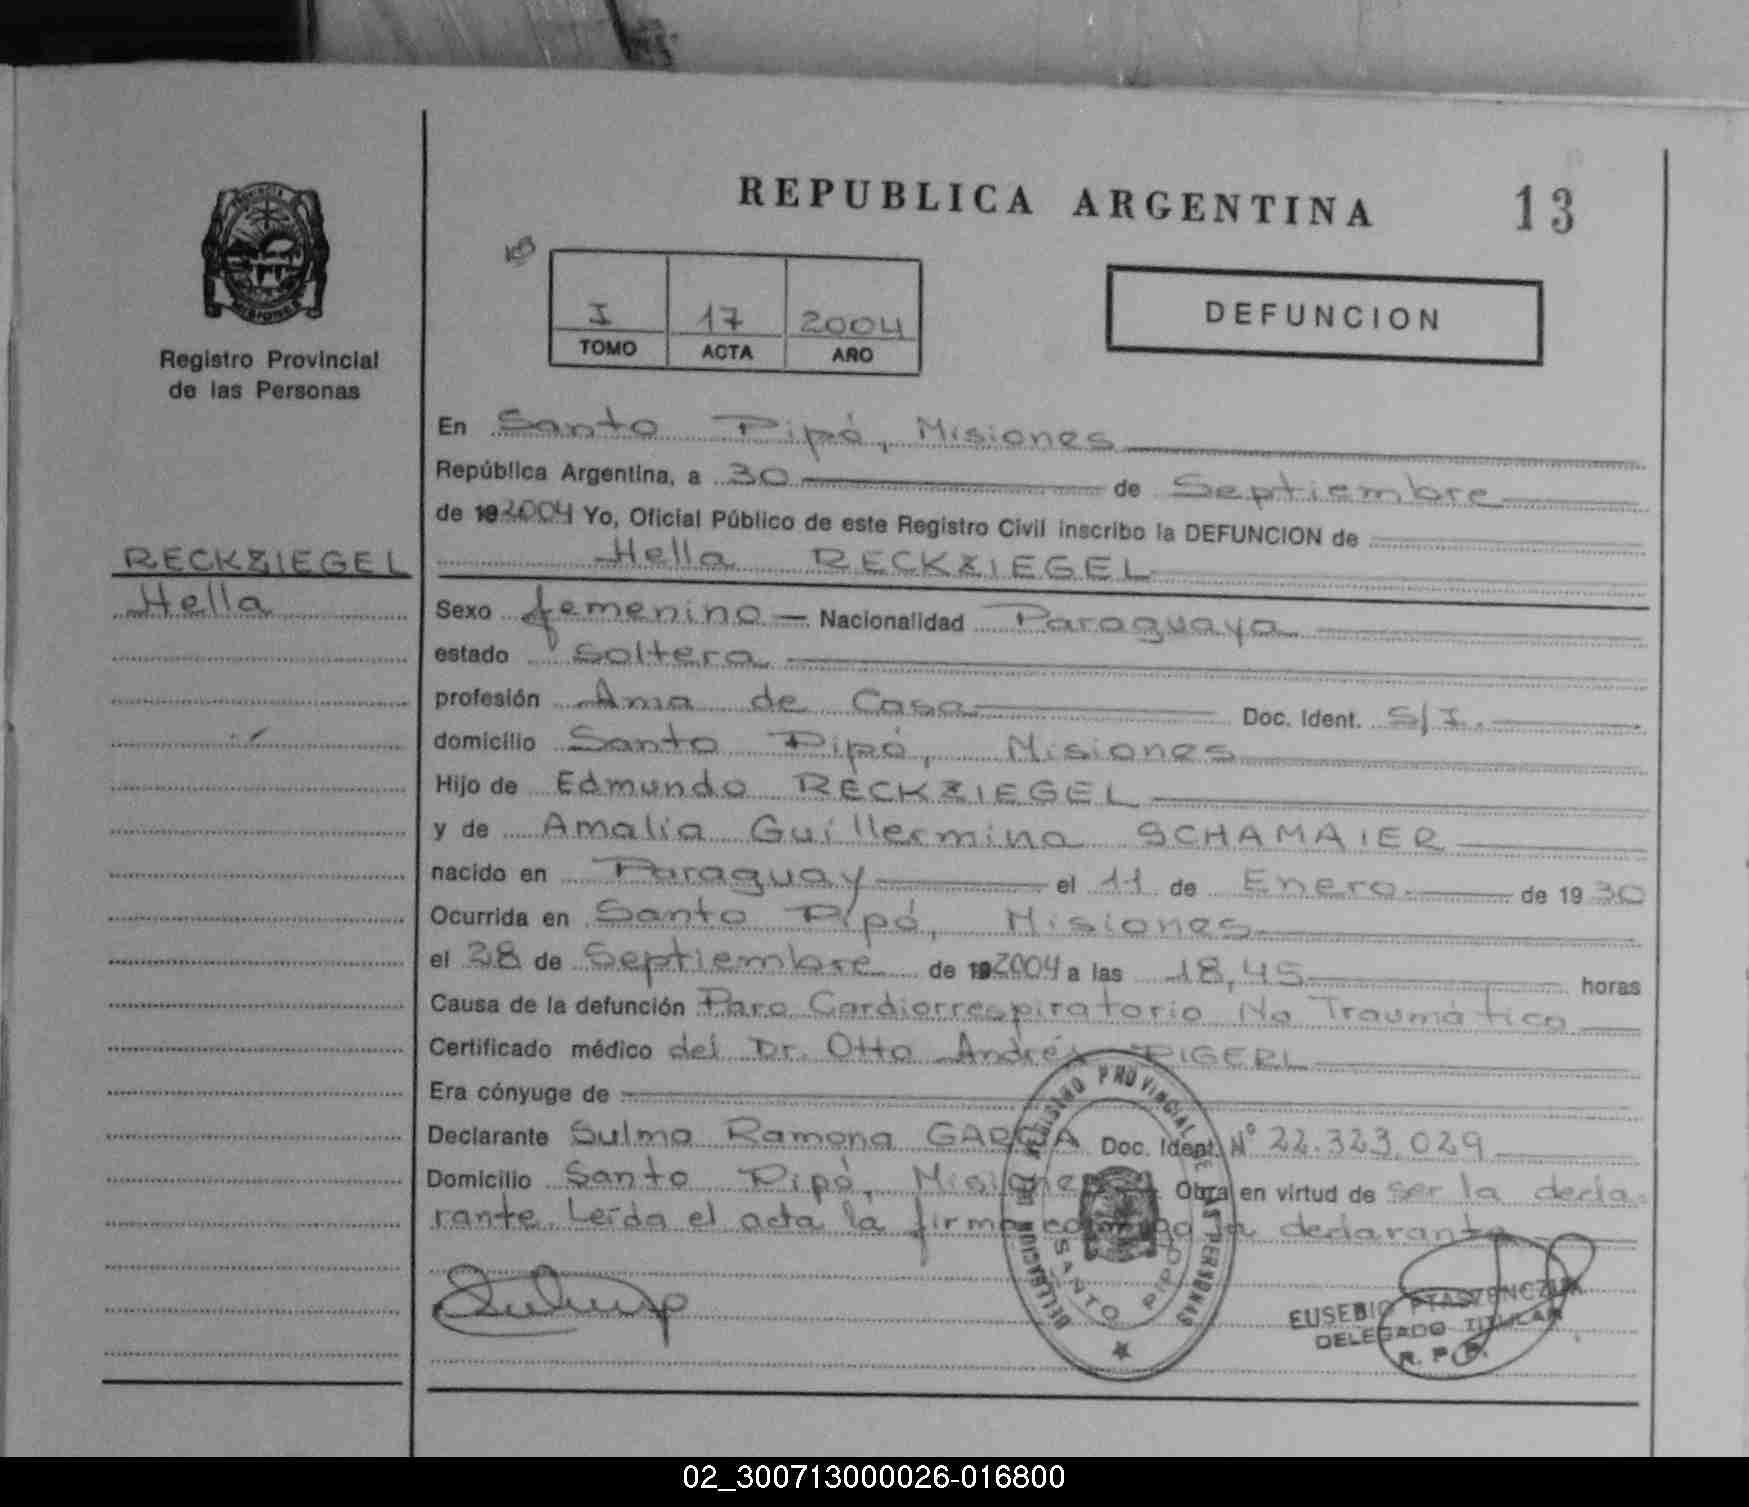 REPUBLICA ARGENTINA
13
I 17 2004
TOMO ACTA AÑO
DEFUNCION
Registro Provincial
de las Personas
RECKZIEGEL
Hella
En Santo Pipó, Misiones
República Argentina, a 30 de Septiembre
de 192004 Yo, Oficial Público de este Registro Civil inscribo la DEFUNCION de
Hella RECKZIEGEL
Sexo femenino — Nacionalidad Paraguaya
estado Soltera
profesión Ama de Casa Doc. Ident. S/I.
domicilio Santo Pipó, Misiones
Hijo de Edmundo RECKZIEGEL
y de Amalia Guillermina SCHAMAIER
nacido en Paraguay el 11 de Enero de 1930
Ocurrida en Santo Pipó, Misiones
el 28 de Septiembre de 192004 a las 18,45 horas
Causa de la defunción Paro Cardiorrespiratorio No Traumático
Certificado médico del Dr. Otto Andrés PIGERL
Era cónyuge de
Declarante Sulma Ramona GARCIA Doc. Ident. N° 22.323.029
Domicilio Santo Pipó, Misiones Obra en virtud de ser la decla-
rante. Leída el acta la firma conmigo la declarante
REGISTRO PROVINCIAL DE LAS PERSONAS
SANTO PIPO
EUSEBIO PTASZENCZUK
DELEGADO TITULAR
R. P. P.
02_300713000026-016800